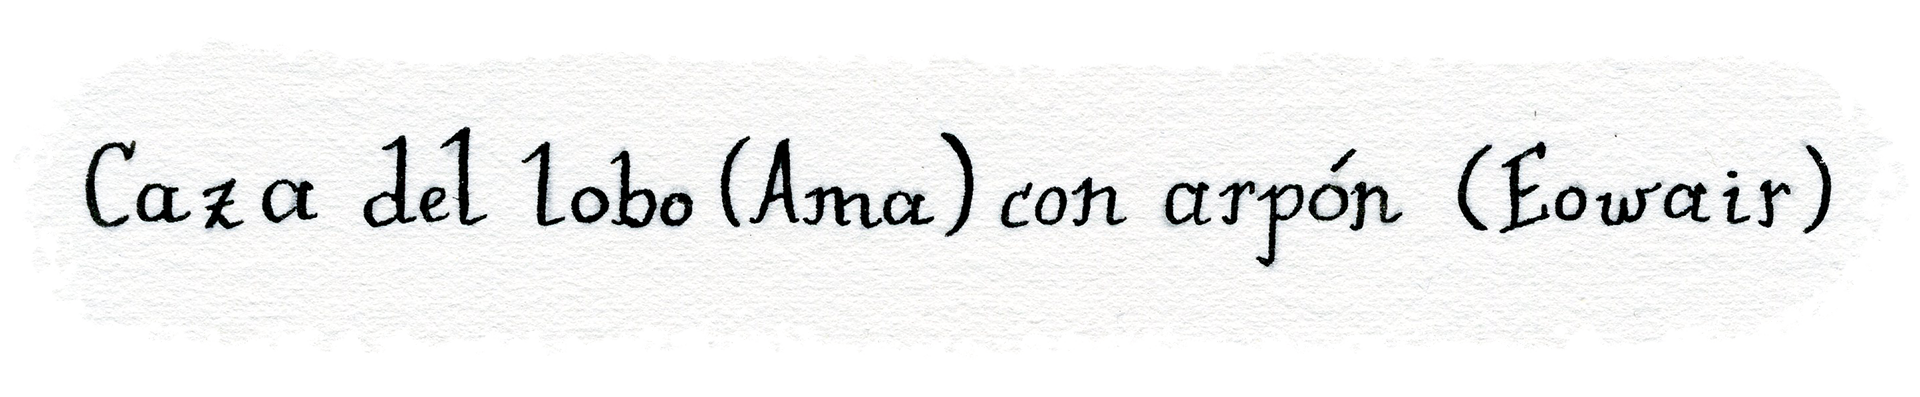 Caza del lobo (Ama) con arpón (Eowair)